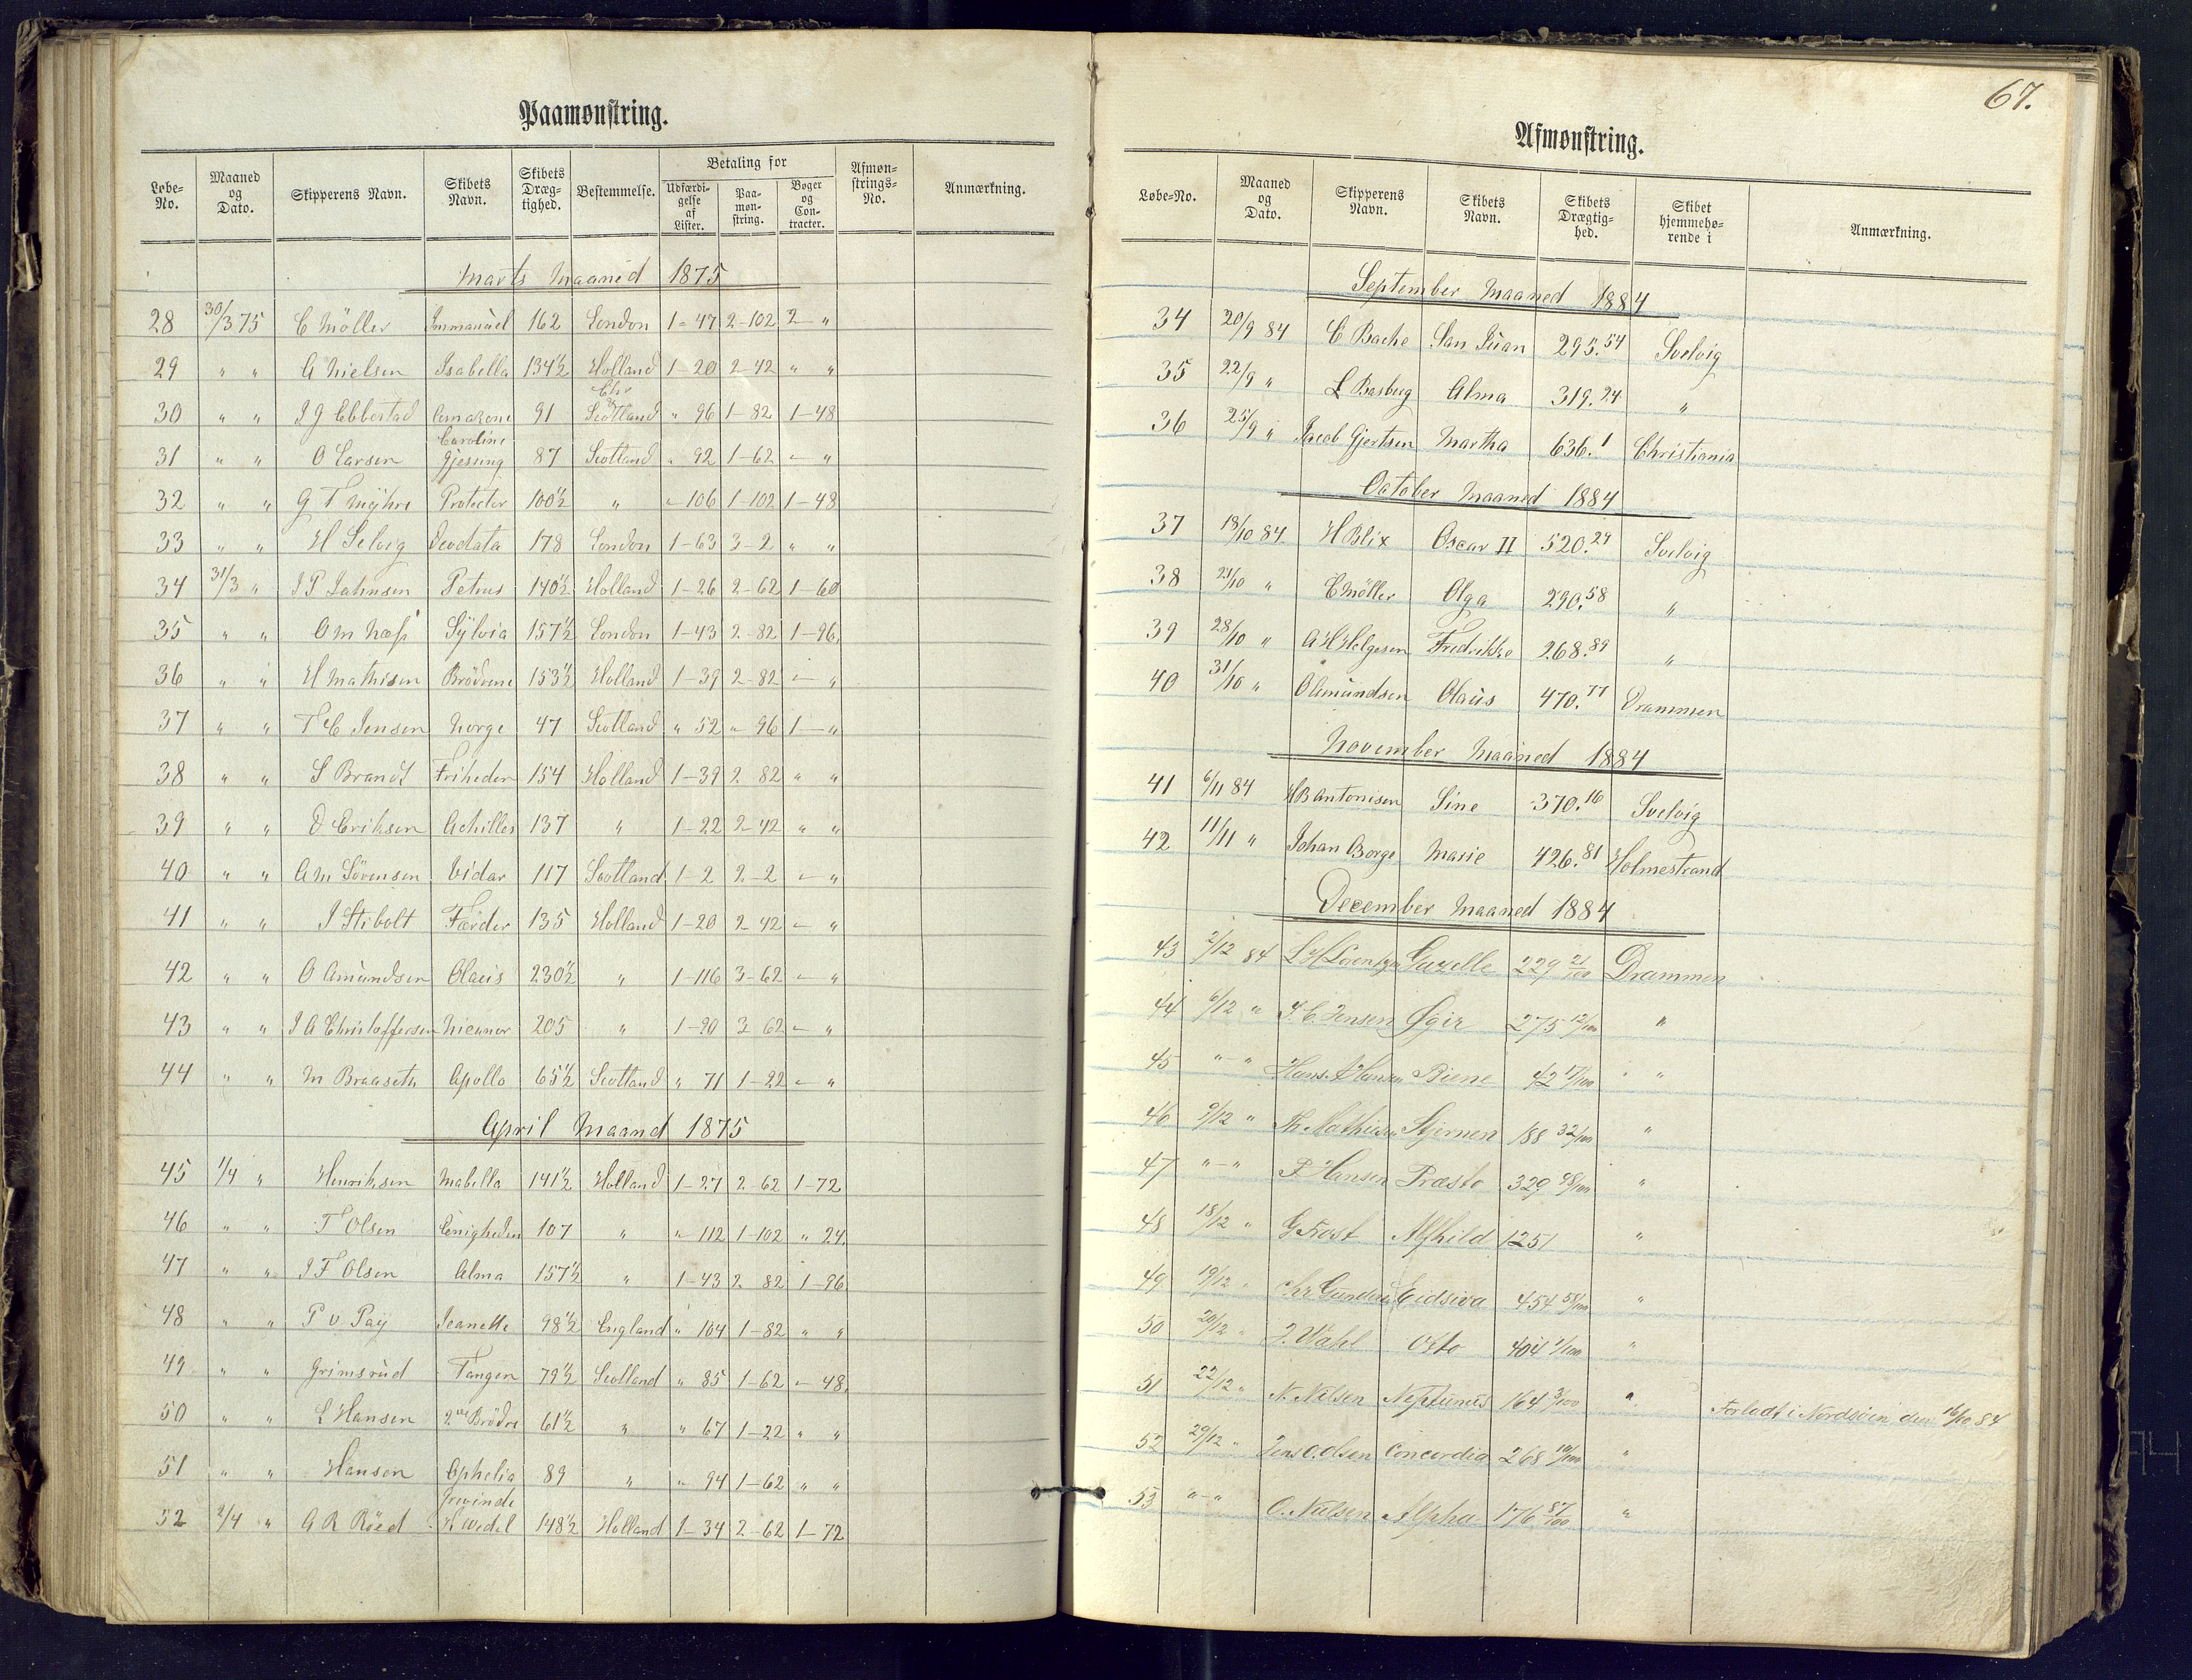 Paamønstring.
Løbe-No. Maaned og Dato. Skipperens Navn. Skibets Navn. Skibets Drægtighed. Bestemmelse. Betaling for Udfærdigelse af Lister. Paamønstring. Bøger og Contracter. Afmønstrings-No. Anmærkning.
Marts Maaned 1875
28 30/3 75 C Möller Immanuel 162 London 1-47 2-102 2 - "
29 " " A Nielsen Isabella 134½ Holland 1-20 2-42 " "
30 " " I J Ebbestad Amazone 91 Scotland " 96 1-82 1-48
31 " " O Larsen Caroline Gjessing 87 Scotland " 92 1-62 " "
32 " " G T Myhre Protector 100½ " " 106 1-102 1-48
33 " " H Selvig Deodata 178 London 1-63 3-2 " "
34 31/3 " I P Jahnsen Petrus 140½ Holland 1-26 2-62 1-60
35 " " O M Næss Sylvia 157½ London 1-43 2-82 1-96
36 " " H Mathisen Brödrene 153½ Holland 1-39 2-82 " "
37 " " T C Jensen Norge 47 Scotland " 52 " 96 1 - "
38 " " S Brandt Friheden 154 Holland 1-39 2 82 " "
39 " " D Eriksen Achilles 137 " 1-22 2-42 " "
40 " " A M Sörensen Vidar 117 Scotland 1-2 2-2 " "
41 " " I Stibolt Færder 135 Holland 1-20 2-42 " "
42 " " O Amundsen Olaus 230½ " 1-116 3-62 " "
43 " " I A Christoffersen Nicanor 205 " 1-90 3-62 " "
44 " " M Braaseth Apollo 65½ Scotland " 71 1-22 " "
April Maaned 1875
45 1/4 " Henriksen Mabella 141½ Holland 1-27 2-62 1-72
46 " " T Olsen Enigheden 107 " " 112 1-102 " 24
47 " " I F Olsen Alma 157½ " 1-43 2-82 1-96
48 " " P v Pay Jeanette 98½ England " 104 1-82 " "
49 " " Grimsrud Tangen 79½ Scotland " 85 1-62 " 48
50 " " L Hansen 2de Brödre 61½ " " 67 1-22 " "
51 " " Hansen Ophelia 89 " " 94 1-62 " "
52 2/4 " A R Röed Grevinde Wedel 148½ Holland 1-34 2-62 1-72
67.
Afmønstring.
Løbe-No. Maaned og Dato. Skipperens Navn. Skibets Navn. Skibets Drægtighed. Skibet hjemmehørende i Anmærkning.
September Maaned 1884
34 20/9 84 C Bache San Juan 295.54 Svelvig
35 22/9 " L Basberg Alma 319.24 "
36 25/9 " Jacob Gjertsen Martha 636.1 Christiania
October Maaned 1884
37 18/10 84 H Blix Oscar II 520.24 Svelvig
38 21/10 " C Möller Olga 290.58 "
39 28/10 " A H Helgesen Fredrikke 268.89 "
40 31/10 " O Amundsen Olaus 470.77 Drammen
November Maaned 1884
41 6/11 84 H B Antonisen Sine 370.16 Svelvig
42 11/11 " Johan Borge Marie 426.81 Holmestrand
December Maaned 1884
43 2/12 84 L H Lorentzen Gazelle 229 21/100 Drammen
44 6/12 " T. C. Jensen Ægir 275 12/100 "
45 " - " Hans A Hansen Biene 42 17/100 " "
46 9/12 " Th. Mathisen Stjernen 188 32/100 "
47 " - " P Hansen Præsto 329 98/100 "
48 18/12 " G Frost Alfhild 1251 "
49 19/12 " Chr Gundersen Eidsiva 454 58/100 "
50 20/12 " Wahl Otto 404 1/100 "
51 22/12 " N. Nilsen Neptunus 164 3/100 " Forladt i Nordsöen den 16/10 84
52 29/12 " Jens O. Olsen Concordia 268 19/100 "
53 " - " O. Nielsen Alpha 176 87/100 "